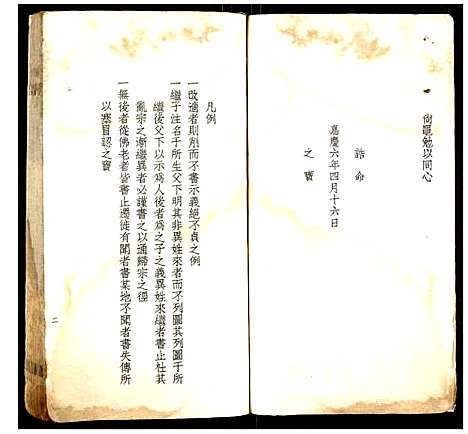 尙黽勉以同心
誥命
嘉慶六年四月十六日
之寶
凡例
一改適者則削而不書示義絕不貞之例
一繼子注名于所生父下明其非異姓來者而不列圖其列圖于所
繼後父下以示為人後者為之子之義異姓來繼者書止杜其
亂宗之漸繼異者必謹書之以通歸宗之徑
一無後者從佛老者皆書止遷徙有聞者書某地不聞者書失傳所
以塞冒認之竇
二